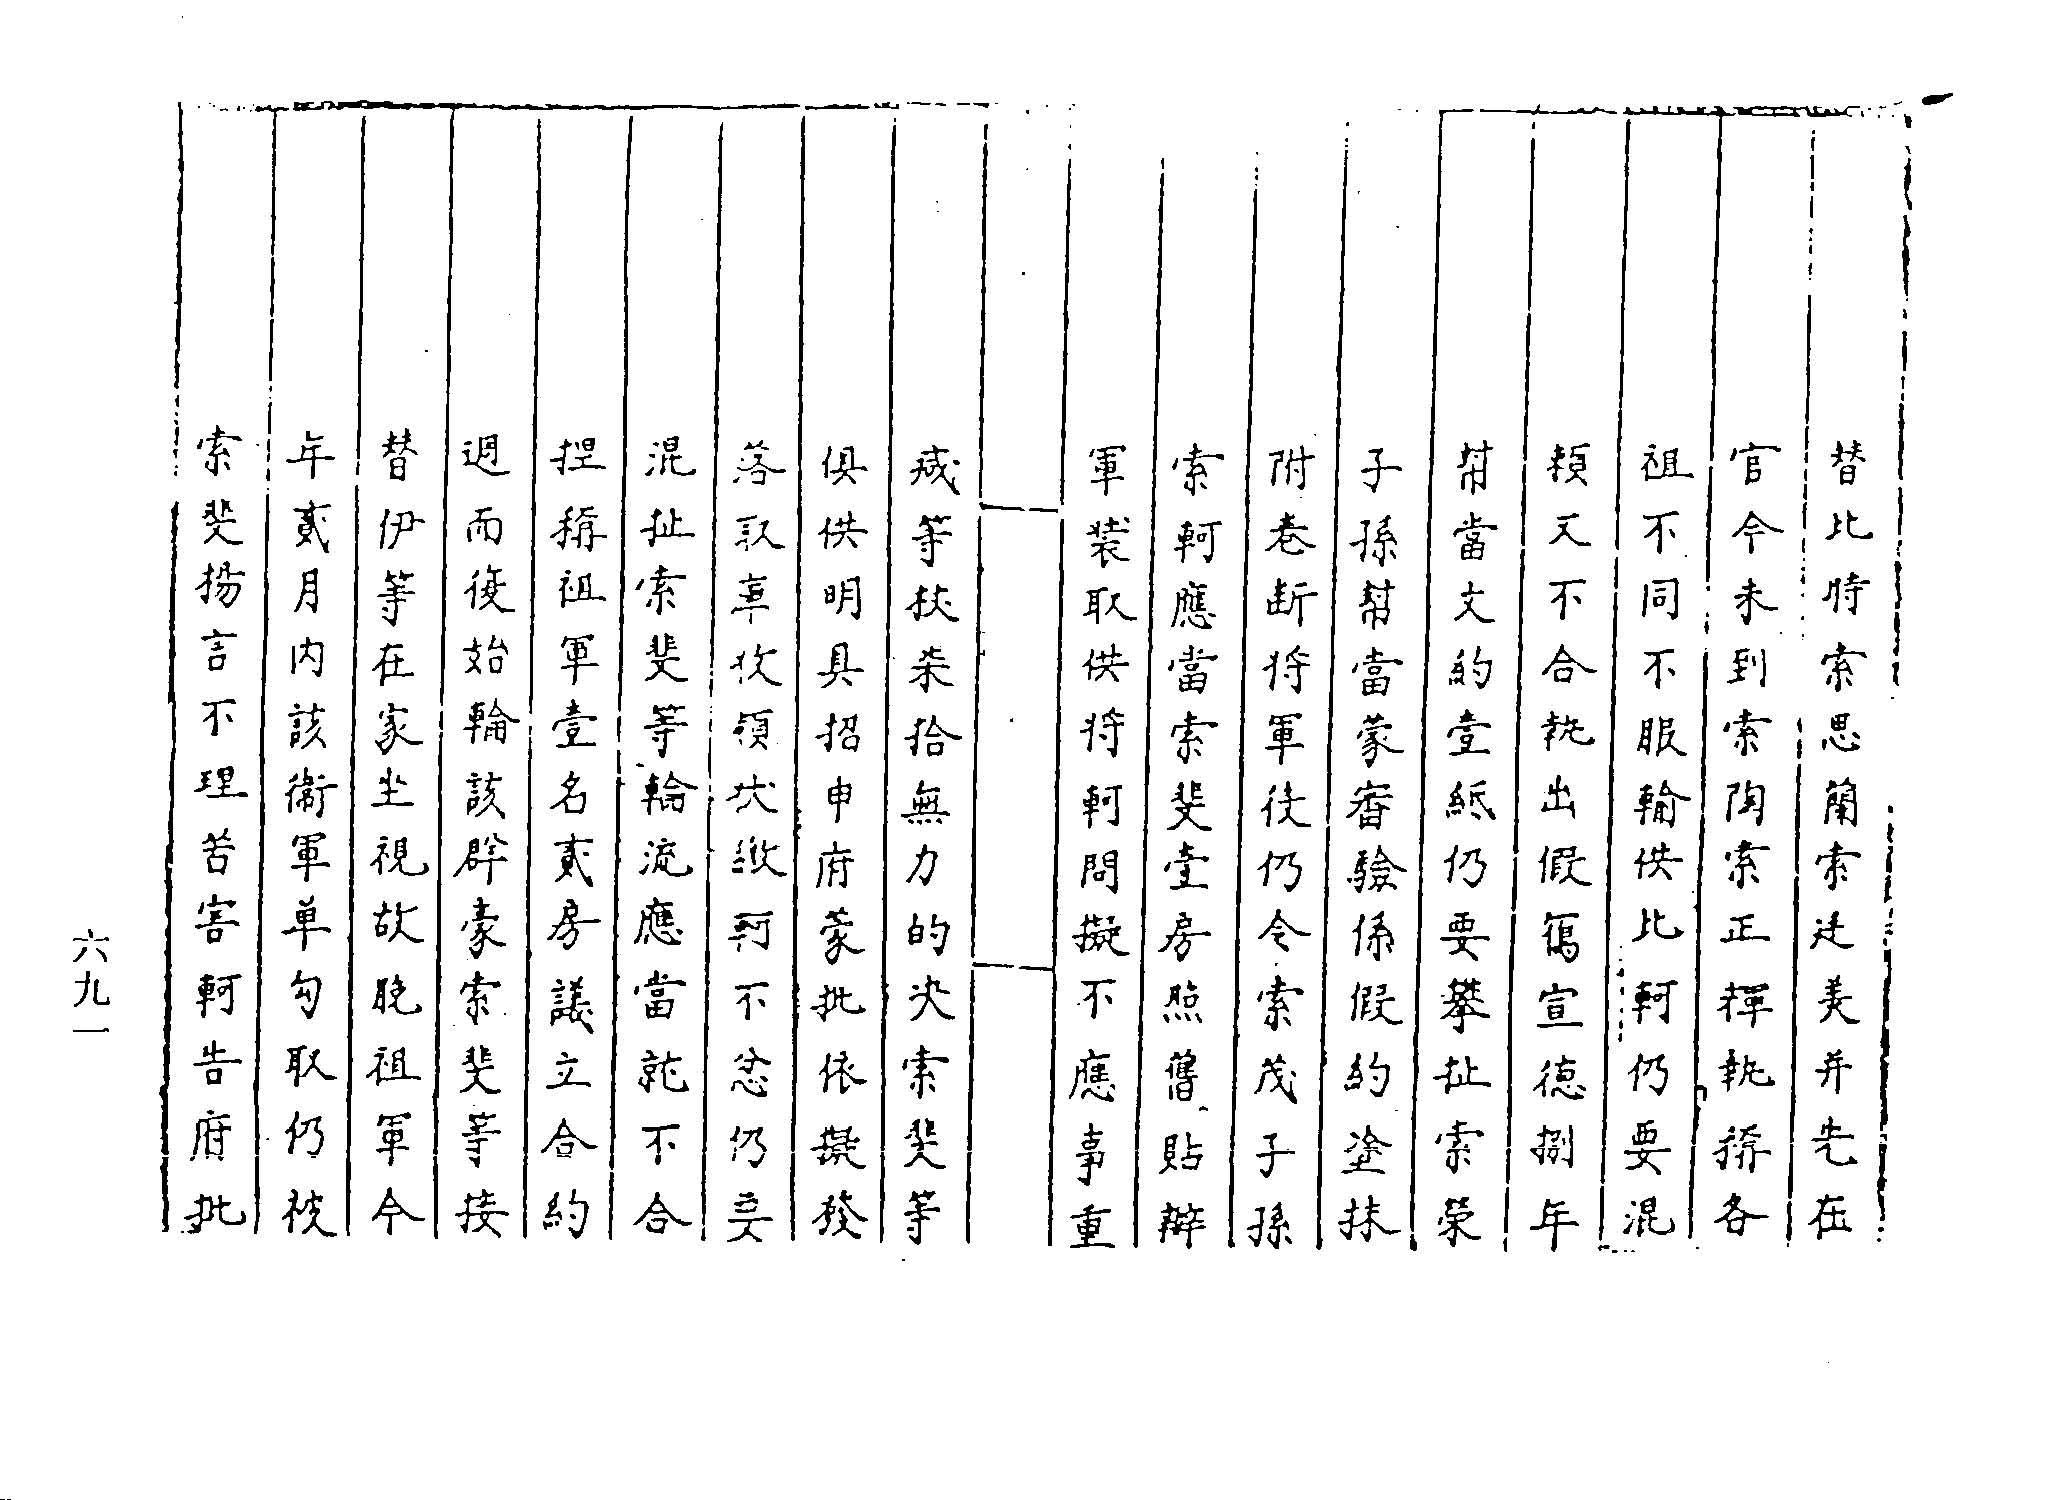 替比時索思蘭索廷美并先在
官今未到索陶索正稈執稱各
祖不同不服輪供比軻仍要混
頼又不合執出假僞宣德捌年
幇當文約壹紙仍要攀扯索荣
子孫幇當蒙審驗係假約塗抹
附卷断将軍役仍令索茂子孫
索軻應當索斐壹房照舊貼辦
軍装取供将軻問擬不應事重
减等杖柒拾無力的决索斐等
俱供明具招申府蒙批依擬發
落取庫收領状繳軻不忿仍又
混扯索斐等輪流應當就不合
捏稱祖軍壹名貳房議立合約
週而復始輪該辟豪索斐等接
替伊等在家坐視故脱祖軍今
年貳月内該衞軍单勾取仍被
索斐揚言不理苦害軻告府批
六九一